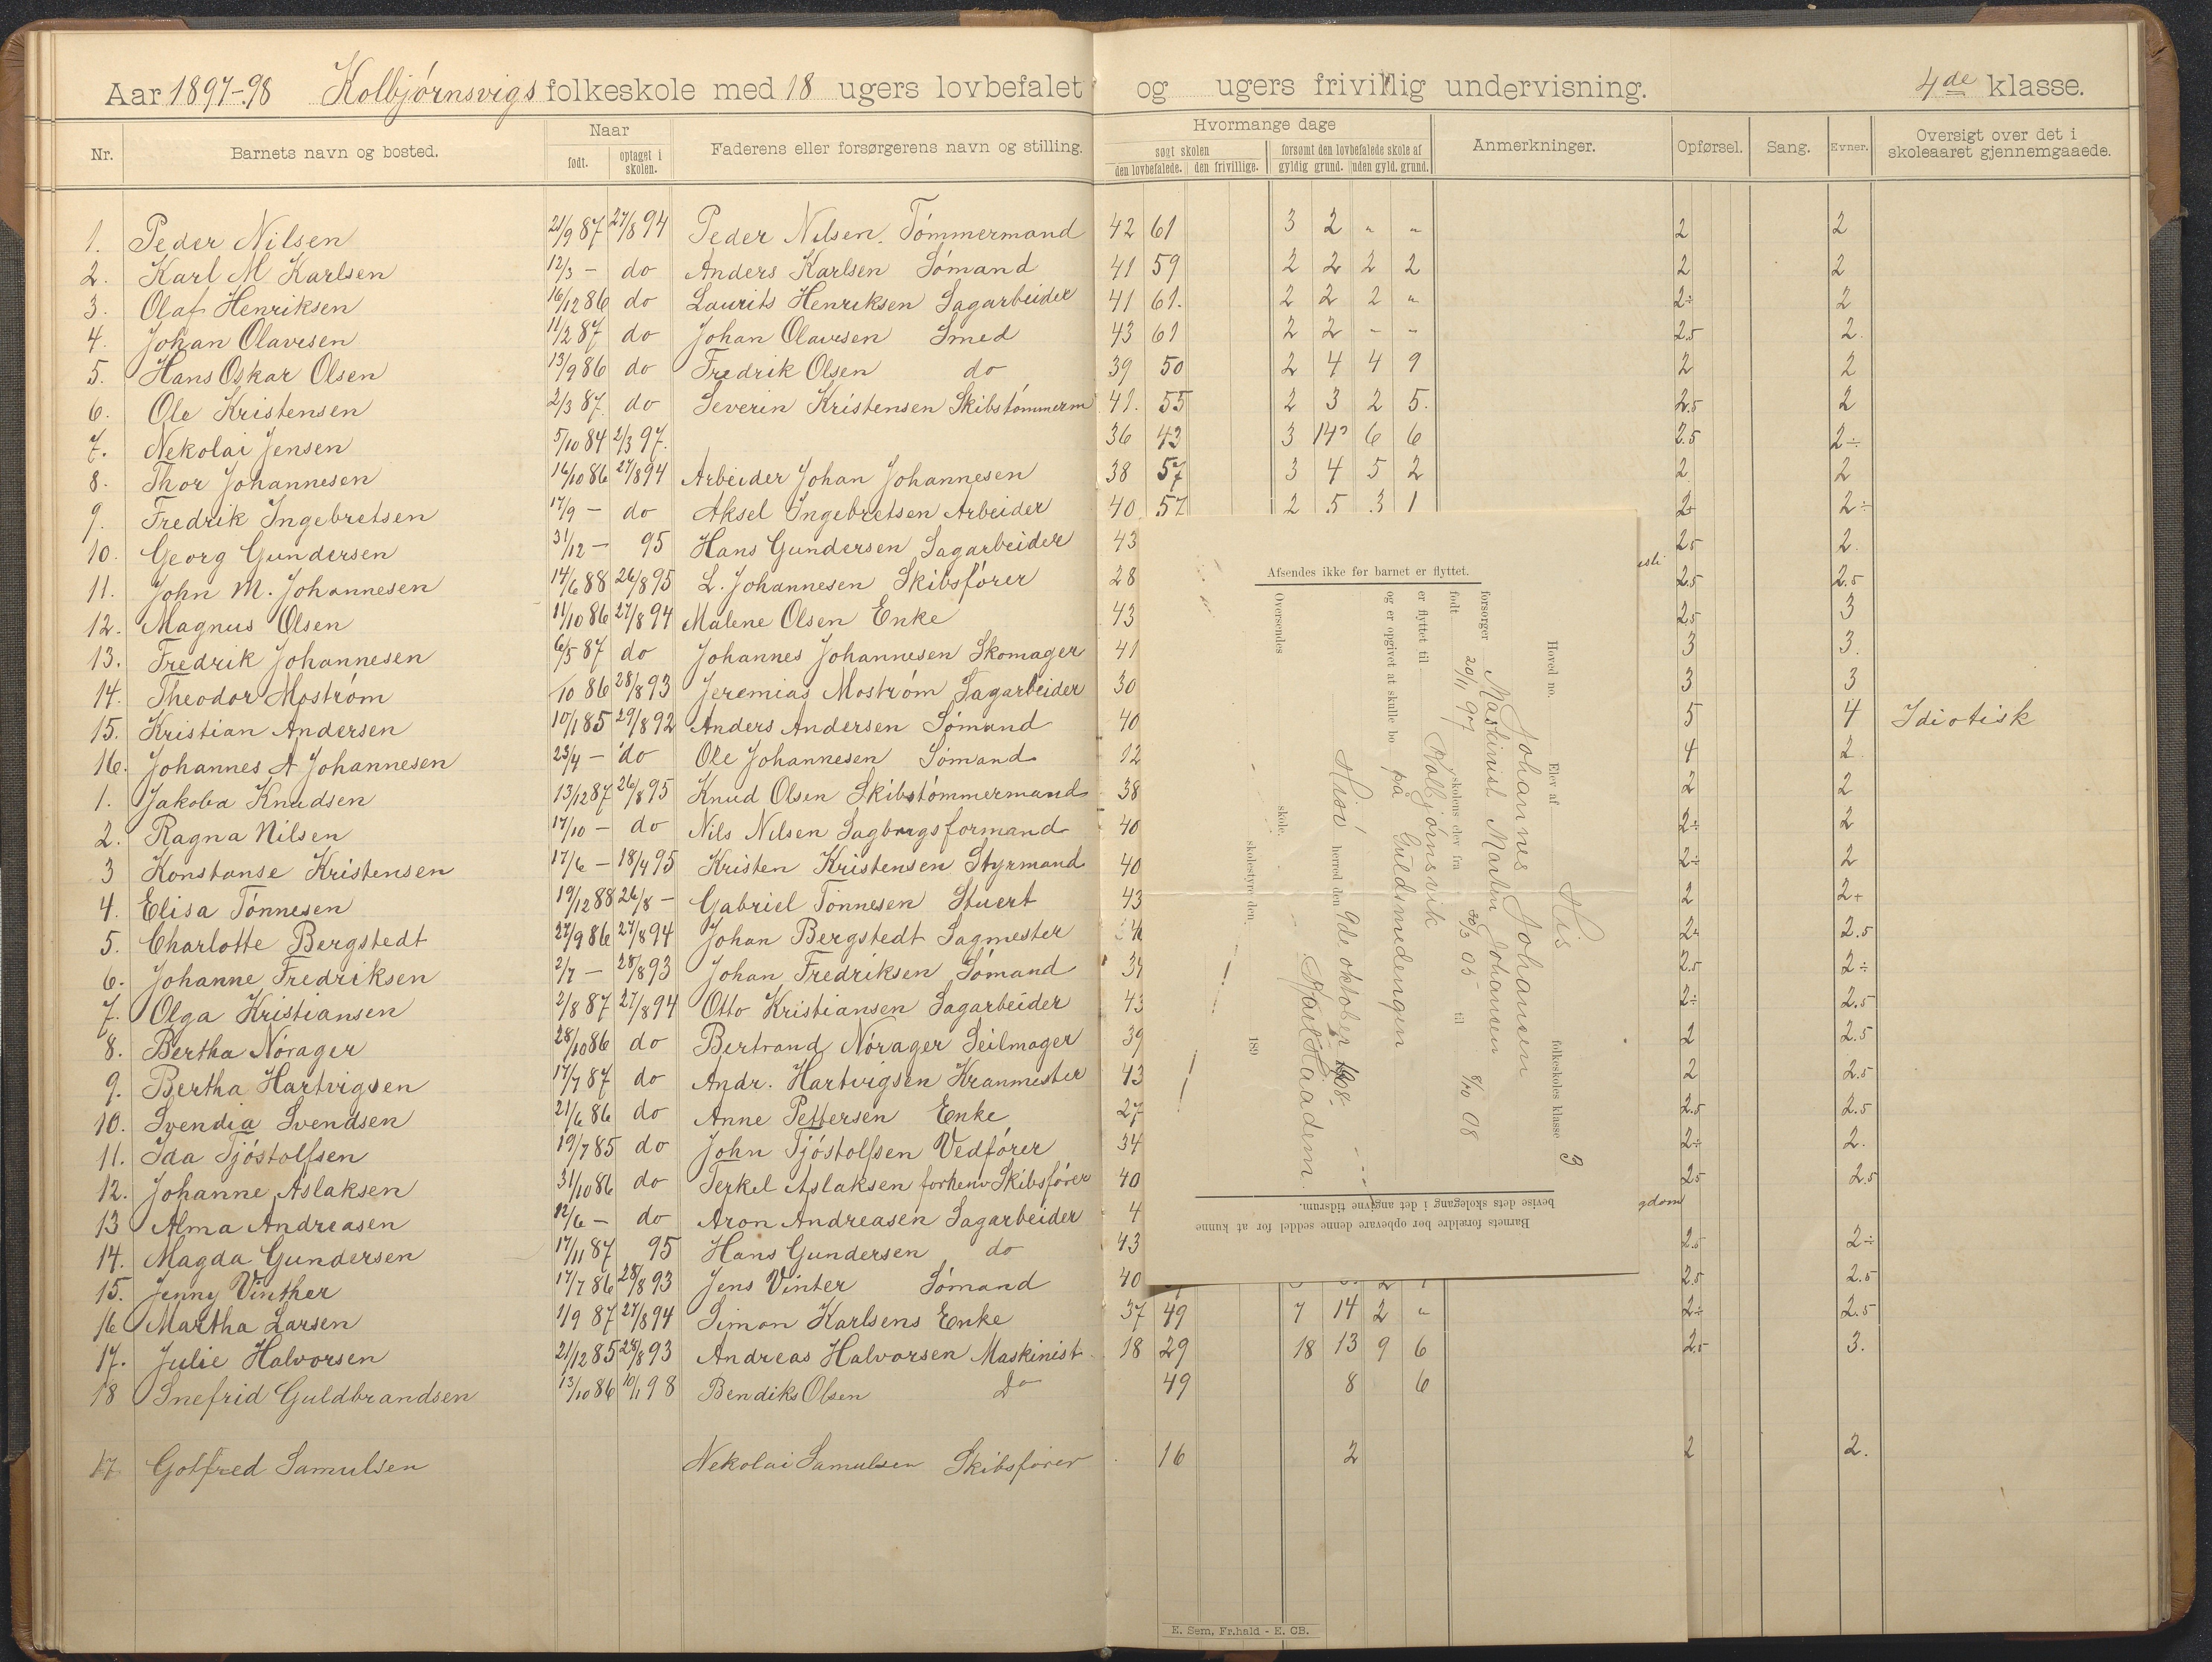 Aar 1897-98 Kolbjørnsvigs folkeskole med 18 ugers lovbefalet og ugers frivillig undervisning. 4de klasse.
Nr. Barnets navn og bosted. Naar født. optaget i skolen. Faderens eller forsørgerens navn og stilling. Hvormange dage søgt skolen den lovbefalede. den frivillige. forsømt den lovbefalede skole af gyldig grund. uden gyld. grund. Anmerkninger. Opførsel. Sang. Evner. Oversigt over det i skoleaaret gjennemgaaede.
1. Peder Nilsen 21/9 87 27/8 94 Peder Nilsen. Tømmermand 42 61 3 2 " " 2 2
2. Karl M Karlsen 12/3 - do Anders Karlsen Sømand 41 59 2 2 2 2 2 2
3. Olaf Henriksen 16/12 86 do Laurits Henriksen Sagarbeider 41 61. 2 2 2 " 2÷ 2
4. Johan Olavesen 11/2 87 do Johan Olavesen Smed 43 61 2 2 - - 2.5 2.
5. Hans Oskar Olsen 13/9 86 do Fredrik Olsen do 39 50 2 4 4 9 2 2
6. Ole Kristensen 2/3 87. do Severin Kristensen Skibstømmerm 41. 55 2 3 2 5. 2.5 2
7. Nekolai Jensen 5/10 84 2/3 97. 36 43 3 14 6 6 2.5 2÷
8. Thor Johannesen 16/10 86 27/8 94 Arbeider Johan Johannesen 38 57 3 4 5 2 2 2
9. Fredrik Ingebretsen 17/9 - do Aksel Ingebretsen Arbeider 40 57 2 5 3 1 2+ 2÷
10. Georg Gundersen 31/12 - 95 Hans Gundersen Sagarbeider 43 2.5 2.
11. John M. Johannesen 14/6 88 26/8 95 L. Johannesen Skibsfører 28 2.5 2.5
12. Magnus Olsen 11/10 86 27/8 94 Malene Olsen Enke 43 2.5 3
13. Fredrik Johannesen 6/5 87 do Johannes Johannesen Skomager 41 3 3.
14. Theodor Moström /10 86 28/8 93 Jeremias Moström Sagarbeider 30 3 3
15. Kristian Andersen 10/1 85 29/8 92 Anders Andersen Sømand 40 5 4 Idiotisk
16. Johannes A Johannesen 23/4 - do Ole Johannesen Sømand 12 4 2.
1. Jakoba Knudsen 13/12 87 26/8 95 Knud Olsen Skibstømmermand 38 2 2
2. Ragna Nilsen 17/10 - do Nils Nilsen Sagbrugsformand 40 2÷ 2
3 Konstanse Kristensen 17/6 - 18/4 95 Kristen Kristensen Styrmand 40 2÷ 2
4. Elisa Tønnesen 19/12 88 26/8 - Gabriel Tønnesen Stuert 43 2 2+
5. Charlotte Bergstedt 27/9 86 27/8 94 Johan Bergstedt Sagmester 2.5
6. Johanne Fredriksen 2/7 - 28/8 93 Johan Fredriksen Sømand 2.5 2÷
7. Olga Kristiansen 2/8 87 27/8 94 Otto Kristiansen Sagarbeider 43 2÷ 2.5
8. Bertha Nørager 28/10 86 do Bertrand Nørager Seilmager 39 2 2.5
9. Bertha Hartvigsen 17/7 87 do Andr. Hartvigsen Kranmester 43 2 2.5
10. Svendia Svendsen 21/6 86 do Anne Pettersen Enke 27 2.5 2.5
11. Ida Tjøstolfsen 19/7 85 do John Tjøstolfsen Vedfører 34 2÷ 2.
12. Johanne Aslaksen 31/10 86 do Terkel Aslaksen forhenv Skibsfører 40 2.5 2.5
13 Alma Andreasen 12/6 - do Aron Andreasen Sagarbeider 4
14. Magda Gundersen 17/11 87 95 Hans Gundersen do 43 2.5 2÷
15. Jenny Vinther 17/7 86 28/8 93 Jens Vinter Sømand 40 2.5 2.5
16 Martha Larsen 1/9 87 27/8 94 Simon Karlsens Enke 37 49 7 14 2 " 2÷ 2.5
17. Julie Halvorsen 21/12 85 28/8 93 Andreas Halvorsen Maskinist 18 29 18 13 9 6 2.5 3.
18 Snefrid Guldbrandsen 13/10 86 10/1 98 Bendiks Olsen Do 49 8 6
17 Gotfred Samulsen Nekolai Samulsen Skibsfører 16 2 2 2.
Afsendes ikke før barnet er flyttet.
Hoved no. Elev af His folkeskoles klasse 3
Johannes Johansen
forsørger Maskinist Martin Johansen
født 20/11 97 skolens elev fra 30/3 05 til 8/10 08
er flyttet til Kolbjørnsvik
og er opgivet at skulle bo på Guldsmedengen
Hisø herred den 9de oktober 1908.
Oversendes skole. skolestyre den 189
Barnets forældre bør opbevare denne seddel for at kunne
bevise dets skolegang i det angivne tidsrum.
E. Sem, Fr.hald - E. CB.